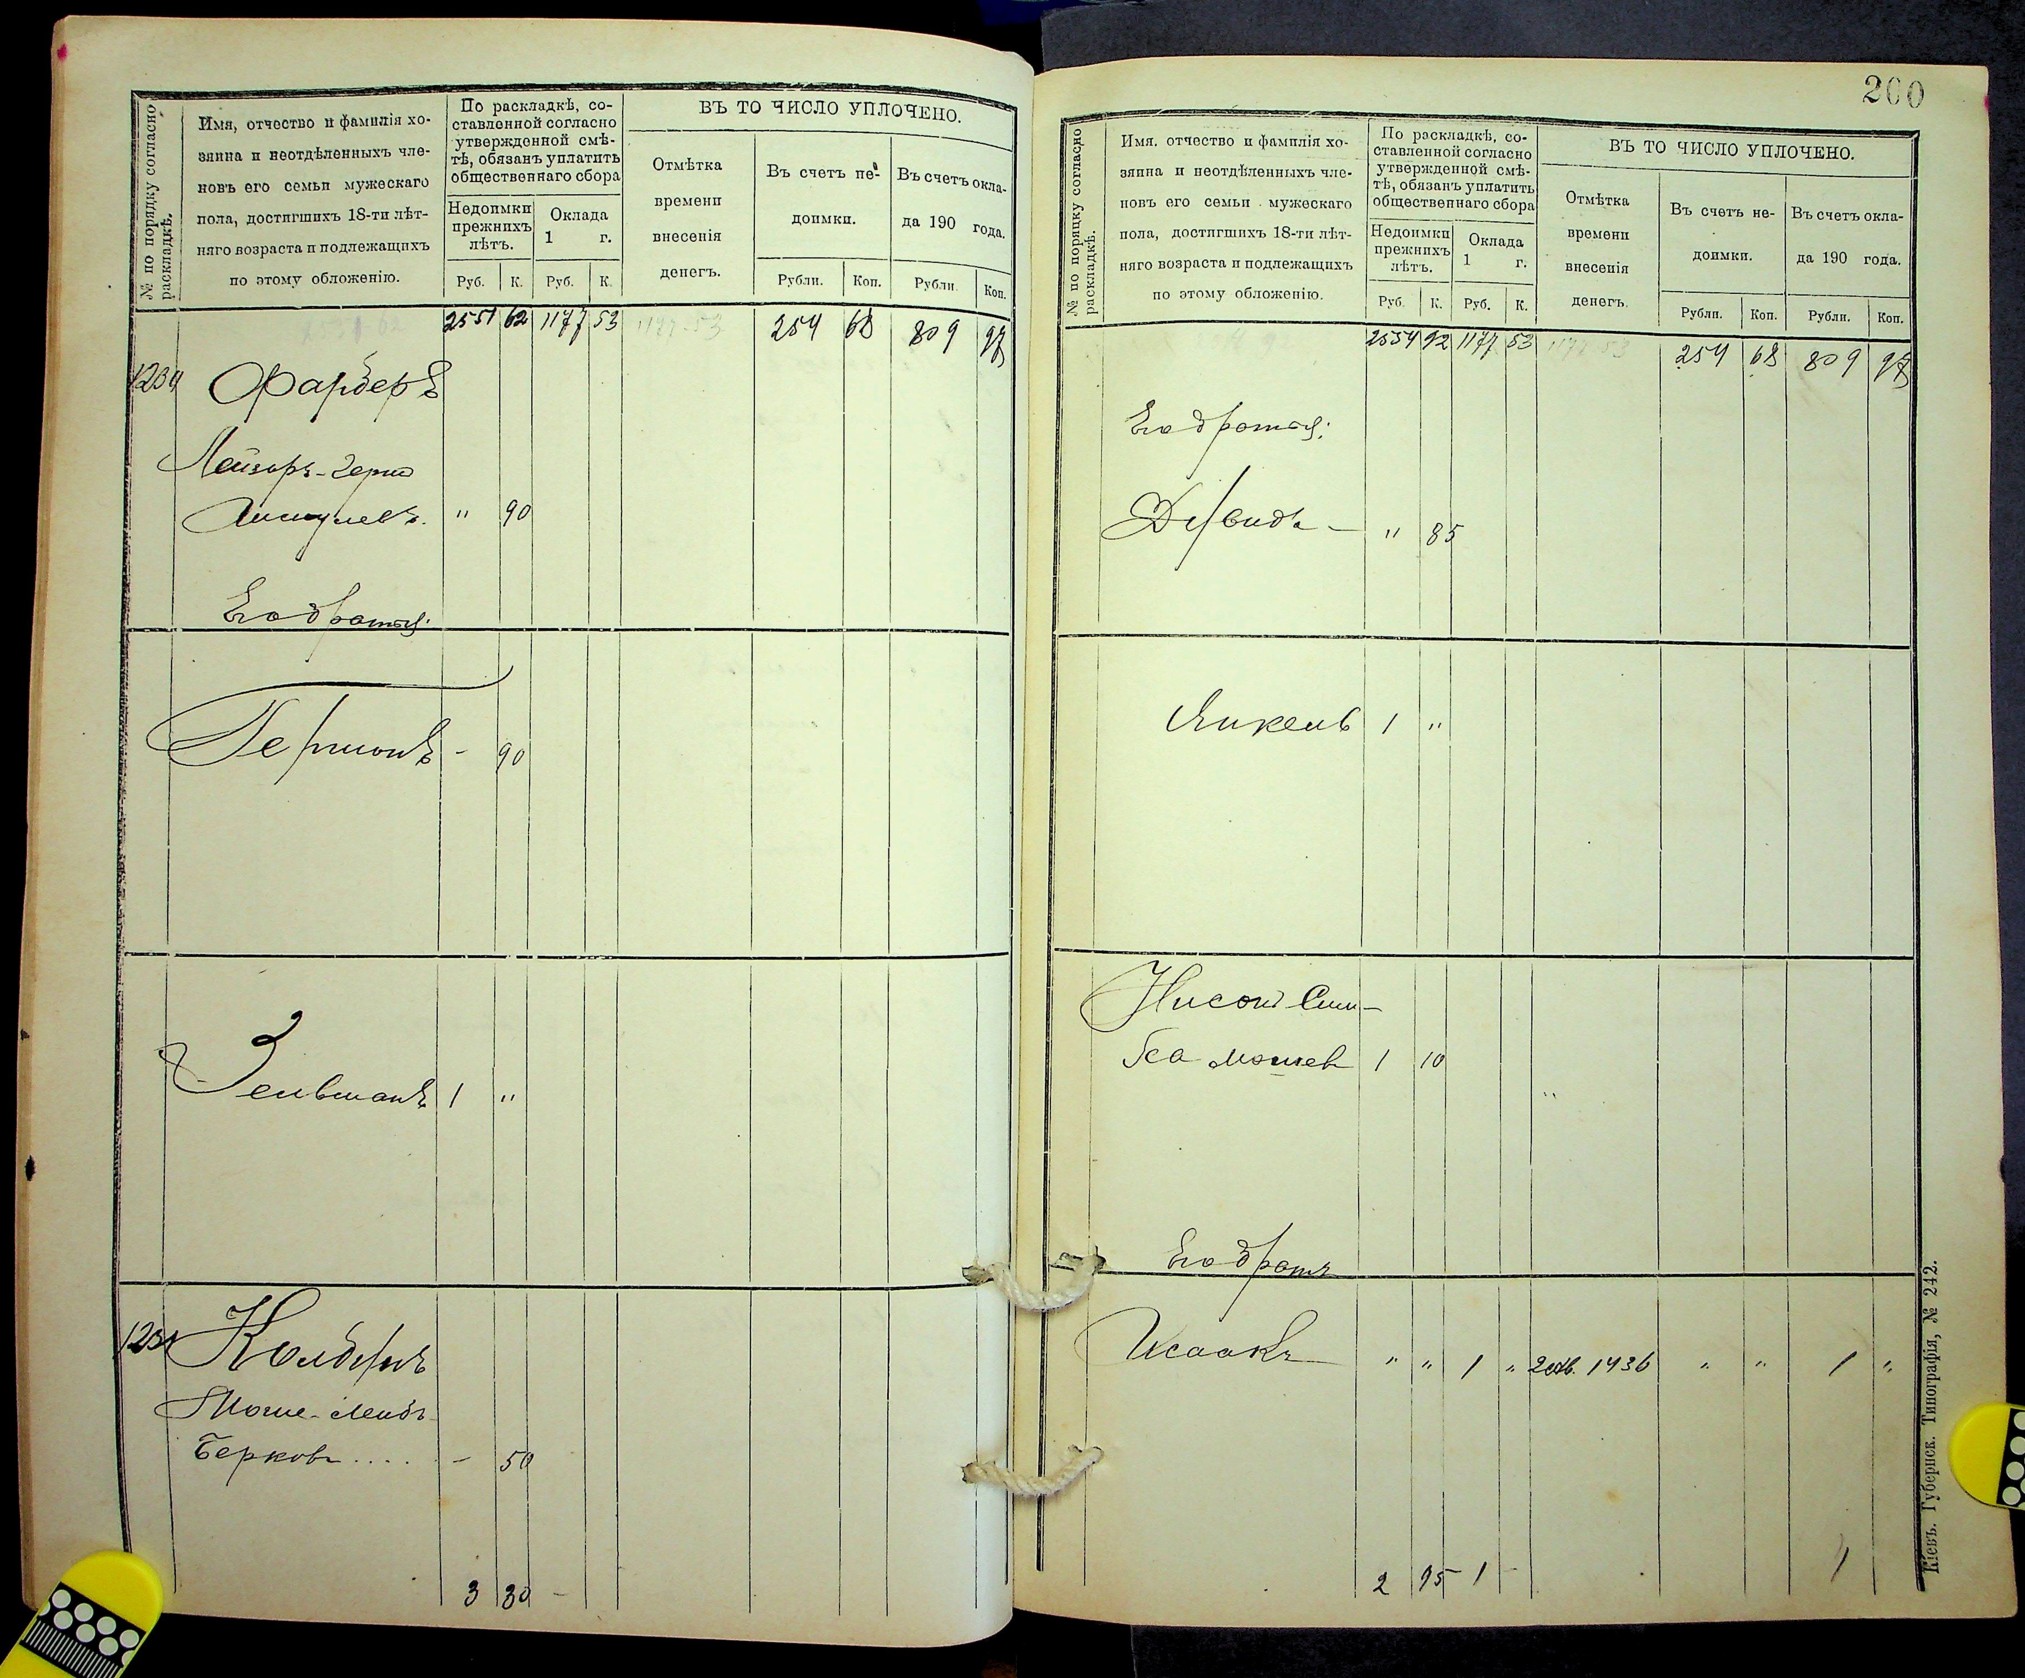 № по порядку согласно раскладкѣ.
Имя, отчество и фамилія хо-
зяина и неотдѣленныхъ чле-
новъ его семьи мужескаго
пола, достигшихъ 18-ти лѣт-
няго возраста и подлежащихъ
по этому обложенію.
По раскладкѣ, со-
ставленной согласно
утвержденной смѣ-
тѣ, обязанъ уплатить
общественнаго сбора
Недоимки прежнихъ лѣтъ.
Оклада 1 г.
Руб. К. Руб. К.
ВЪ ТО ЧИСЛО УПЛОЧЕНО.
Отмѣтка
времени
внесенія
денегъ.
Въ счетъ не-
доимки.
Рубли. Коп.
Въ счетъ окла-
да 190 года.
Рубли Коп.
2551 62 1177 53 254 68 809 97
Фарберъ
Лейзоръ-Герш
" 90
Его братья:
Гершонъ - 90
Зельманъ 1 "
Моше-Лейбъ
Берковъ .... - 50
3 30 -
200
№ по порядку согласно раскладкѣ.
Имя, отчество и фамилія хо-
зяина и неотдѣленныхъ чле-
новъ его семьи мужескаго
пола, достигшихъ 18-ти лѣт-
няго возраста и подлежащихъ
по этому обложенію.
По раскладкѣ, со-
ставленной согласно
утвержденной смѣ-
тѣ, обязанъ уплатить
общественнаго сбора
Недоимки прежнихъ лѣтъ.
Оклада 1 г.
Руб. К. Руб. К.
ВЪ ТО ЧИСЛО УПЛОЧЕНО.
Отмѣтка
времени
внесенія
денегъ.
Въ счетъ не-
доимки.
Рубли. Коп.
Въ счетъ окла-
да 190 года.
Рубли. Коп.
2554 92 1177 53 254 68 809 97
Его братья:
Давидъ - " 85
Янкель 1 "
Нисон Сим-
ха Мошев 1 10
Его братъ
Исаакъ " " 1 " 1436 " " 1 "
2 95 1 - 1
Кіевъ. Губернск. Типографія, № 242.